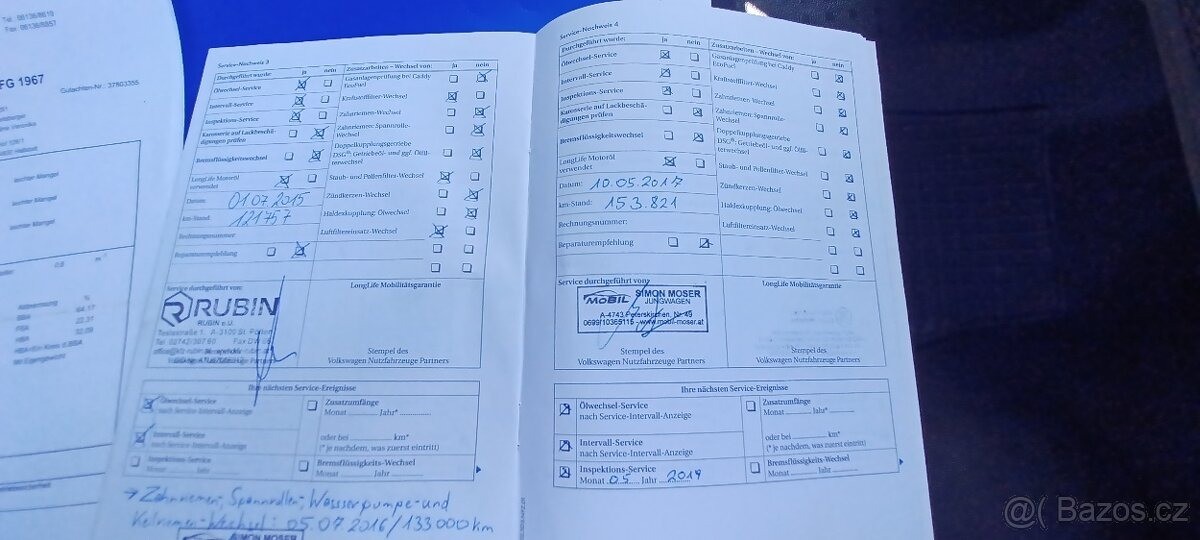 Tel. 06136/8619
Fax. 06136/8857
FG 1967
Gutachten-Nr.: 37803355
leichter Mangel
leichter Mangel
leichter Mangel
Service-Nachweis 3
Durchgeführt wurde: ja nein
Ölwechsel-Service
Intervall-Service
Inspektions-Service
Karosserie auf Lackbeschä-
digungen prüfen
Bremsflüssigkeitswechsel
LongLife Motoröl
verwendet
Datum: 01.07.2015
km-Stand: 121757
Rechnungsnummer:
Reparaturempfehlung
Zusatzarbeiten – Wechsel von: ja nein
Gasanlagenprüfung bei Caddy
EcoFuel
Kraftstofffilter-Wechsel
Zahnriemen-Wechsel
Zahnriemen: Spannrolle-
Wechsel
Doppelkupplungsgetriebe
DSG®: Getriebeöl- und ggf. Ölfil-
terwechsel
Staub- und Pollenfilter-Wechsel
Zündkerzen-Wechsel
Haldexkupplung: Ölwechsel
Luftfiltereinsatz-Wechsel
Service durchgeführt von:
RUBIN
RUBIN e.U.
LongLife Mobilitätsgarantie
Stempel des
Volkswagen Nutzfahrzeuge Partners
Ihre nächsten Service-Ereignisse
Ölwechsel-Service
nach Service-Intervall-Anzeige
Intervall-Service
nach Service-Intervall-Anzeige
Inspektions-Service
Monat Jahr
Zusatzumfänge
Monat Jahr*
oder bei km*
(* je nachdem, was zuerst eintritt)
Bremsflüssigkeits-Wechsel
Monat Jahr
→ Zahnriemen, Spannrollen, Wasserpumpe- und
Keilriemen-Wechsel: 05.07.2016/133000km
SIMON MOSER
Service-Nachweis 4
Durchgeführt wurde: ja nein
Ölwechsel-Service
Intervall-Service
Inspektions-Service
Karosserie auf Lackbeschä-
digungen prüfen
Bremsflüssigkeitswechsel
LongLife Motoröl
verwendet
Datum: 10.05.2017
km-Stand: 153.821
Rechnungsnummer:
Reparaturempfehlung
Zusatzarbeiten – Wechsel von: ja nein
Gasanlagenprüfung bei Caddy
EcoFuel
Kraftstofffilter-Wechsel
Zahnriemen-Wechsel
Zahnriemen: Spannrolle-
Wechsel
Doppelkupplungsgetriebe
DSG®: Getriebeöl- und ggf. Ölfil-
terwechsel
Staub- und Pollenfilter-Wechsel
Zündkerzen-Wechsel
Haldexkupplung: Ölwechsel
Luftfiltereinsatz-Wechsel
Service durchgeführt von:
MOBIL SIMON MOSER
JUNGWAGEN
A-4743 Peterskirchen, Nr. 49
0699/10365115 - www.mobil-moser.at
Stempel des
Volkswagen Nutzfahrzeuge Partners
LongLife Mobilitätsgarantie
Stempel des
Volkswagen Nutzfahrzeuge Partners
Ihre nächsten Service-Ereignisse
Ölwechsel-Service
nach Service-Intervall-Anzeige
Intervall-Service
nach Service-Intervall-Anzeige
Inspektions-Service
Monat 05 Jahr 2019
Zusatzumfänge
Monat Jahr*
oder bei km*
(* je nachdem, was zuerst eintritt)
Bremsflüssigkeits-Wechsel
Monat Jahr
@( Bazos.cz